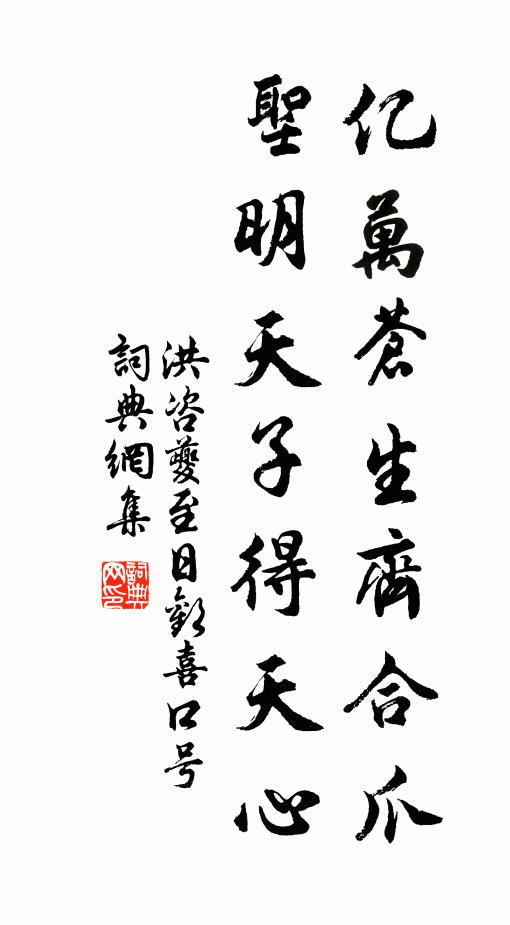 亿萬蒼生齊合爪
聖明天子得天心
洪咨夔至日歡喜口号
詞典網集
詞典网印